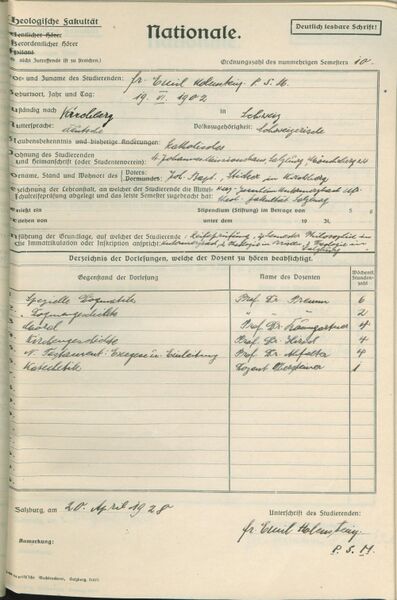 Theologische Fakultät
Ordentlicher Hörer
Außerordentlicher Hörer
Nationale.
Deutlich lesbare Schrift!
(nicht Zutreffende ist zu streichen.)
Ordnungszahl des nunmehrigen Semesters 10.
Vor- und Zuname des Studierenden: fr. Emil Holenstein P. S. M.
Geburtsort, Jahr und Tag: 19. VI. 1902
Zuständig nach Kirchberg in Schweiz
Muttersprache: deutsche Volkszugehörigkeit: Schweizerische
Glaubensbekenntnis und bisherige Änderungen: katholisches
Wohnung des Studierenden
und Heimanschrift (oder Studentenverein): Johannes Salzburg Mönchsberg 24
Vorname, Stand und Wohnort des Vaters: Joh. Bapt., in Kirchberg
Vormundes:
Bezeichnung der Lehranstalt, an welcher der Studierende die Mittelschulreifeprüfung
abgelegt und das letzte Semester zugebracht hat: theol. Fakultät Salzburg
Bezieht ein Stipendium (Stiftung) im Betrage von S g
verliehen von unter dem 19 Zl.
Anführung der Grundlage, auf welcher der Studierende Reifeprüfung, Philosophie in
die Immatrikulation oder Inskription anspricht: Theologie in
Salzburg
Verzeichnis der Vorlesungen, welche der Dozent zu hören beabsichtigt.
Gegenstand der Vorlesung Name des Dozenten Wöchentl. Stundenzahl
Spezielle Dogmatik Prof. Dr. 6
" Dogmengeschichte " " " 2
Moral Prof. Dr. Baumgartner 4
Kirchengeschichte Prof. Dr. 4
N. Testament: Exegese u. Einleitung Prof. Dr. 4
Katechetik Dozent 1
Salzburg, am 20. April 1928
Unterschrift des Studierenden:
fr. Emil Holenstein
P. S. M.
Anmerkung:
Salzburg